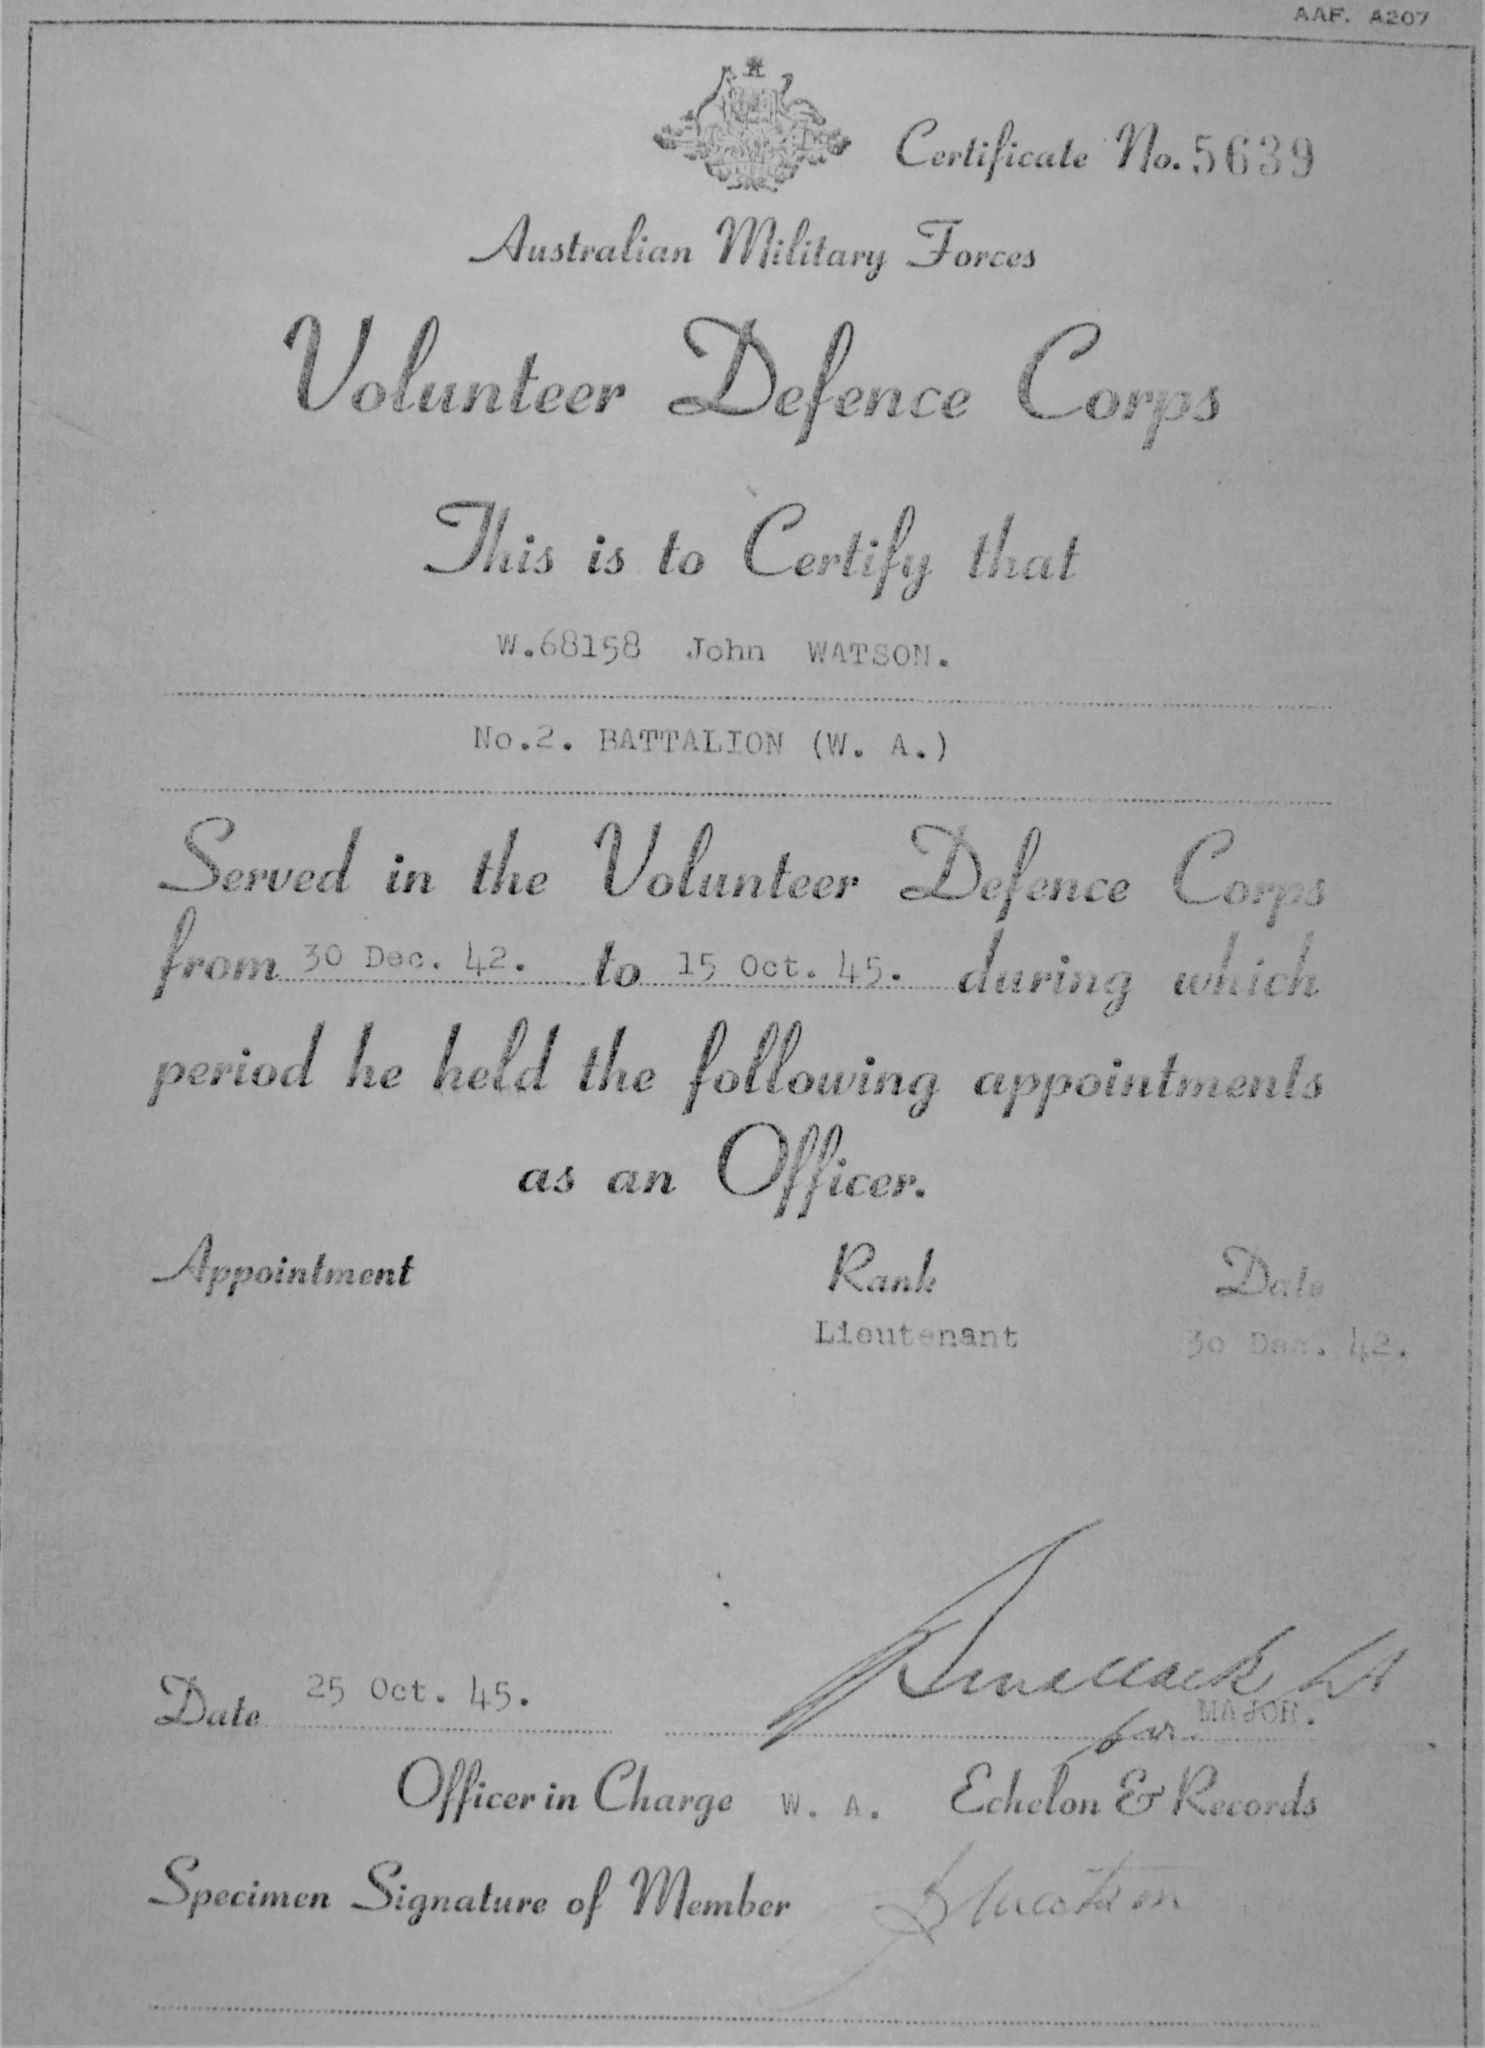 AAF. A207
Certificate No. 5639
Australian Military Forces
Volunteer Defence Corps
This is to Certify that
W.68158 John WATSON.
No.2. BATTALION (W. A.)
Served in the Volunteer Defence Corps
from 30 Dec. 42. to 15 Oct. 45. during which
period he held the following appointments
as an Officer.
Appointment Rank Date
Lieutenant 30 Dec. 42.
Lt
Date 25 Oct. 45. for MAJOR.
Officer in Charge W. A. Echelon & Records
Specimen Signature of Member